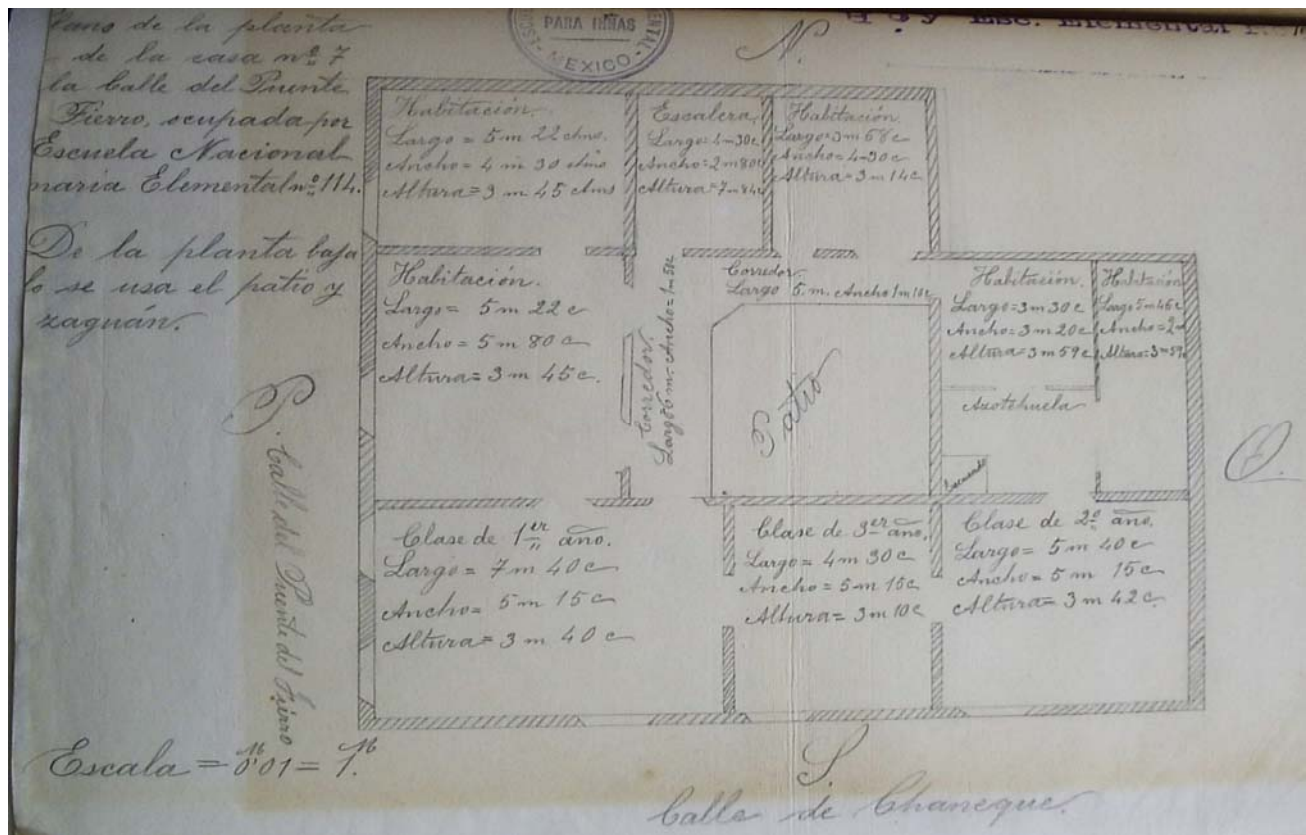 Plano de la planta
de la casa nº 7
la Calle del Puente
Fierro, ocupada por
Escuela Nacional
maria Elemental nº 114.
De la planta baja
lo se usa el patio y
zaguán.
PARA NIÑAS
MEXICO
Esc. Elemental
N.
Habitación.
Largo = 5 m 22 ctms.
Ancho = 4 m 30 ctms
Altura = 3 m 45 ctms
Escalera.
Largo = 4 m 30 c
Ancho = 2 m 80 c
Altura = 7 m 84 c
Habitación
Largo = 3 m 68 c
Ancho = 4 - 30 c
Altura = 3 m 14 c
Habitación.
Largo = 5 m 22 c
Ancho = 5 m 80 c
Altura = 3 m 45 c.
Corredor.
Largo 6 m. Ancho = 1 m 50 c
Corredor.
Largo 5 m. Ancho 1 m 10 c
Patio
Habitación.
Largo = 3 m 30 c
Ancho = 3 m 20 c
Altura = 3 m 59 c
Habitación
Largo 5 m 46 c
Ancho = 2 m
Altura = 3 m 59
Azotehuela
Escusado
P.
Calle del Puente del Fierro
O.
Clase de 1er año.
Largo = 7 m 40 c
Ancho = 5 m 15 c
Altura = 3 m 40 c
Clase de 3er año.
Largo = 4 m 30 c
Ancho = 5 m 15 c
Altura = 3 m 10 c
Clase de 2º año.
Largo = 5 m 40 c
Ancho = 5 m 15 c
Altura = 3 m 42 c.
Escala = 0m01 = 1m.
S.
Calle de Chaneque.